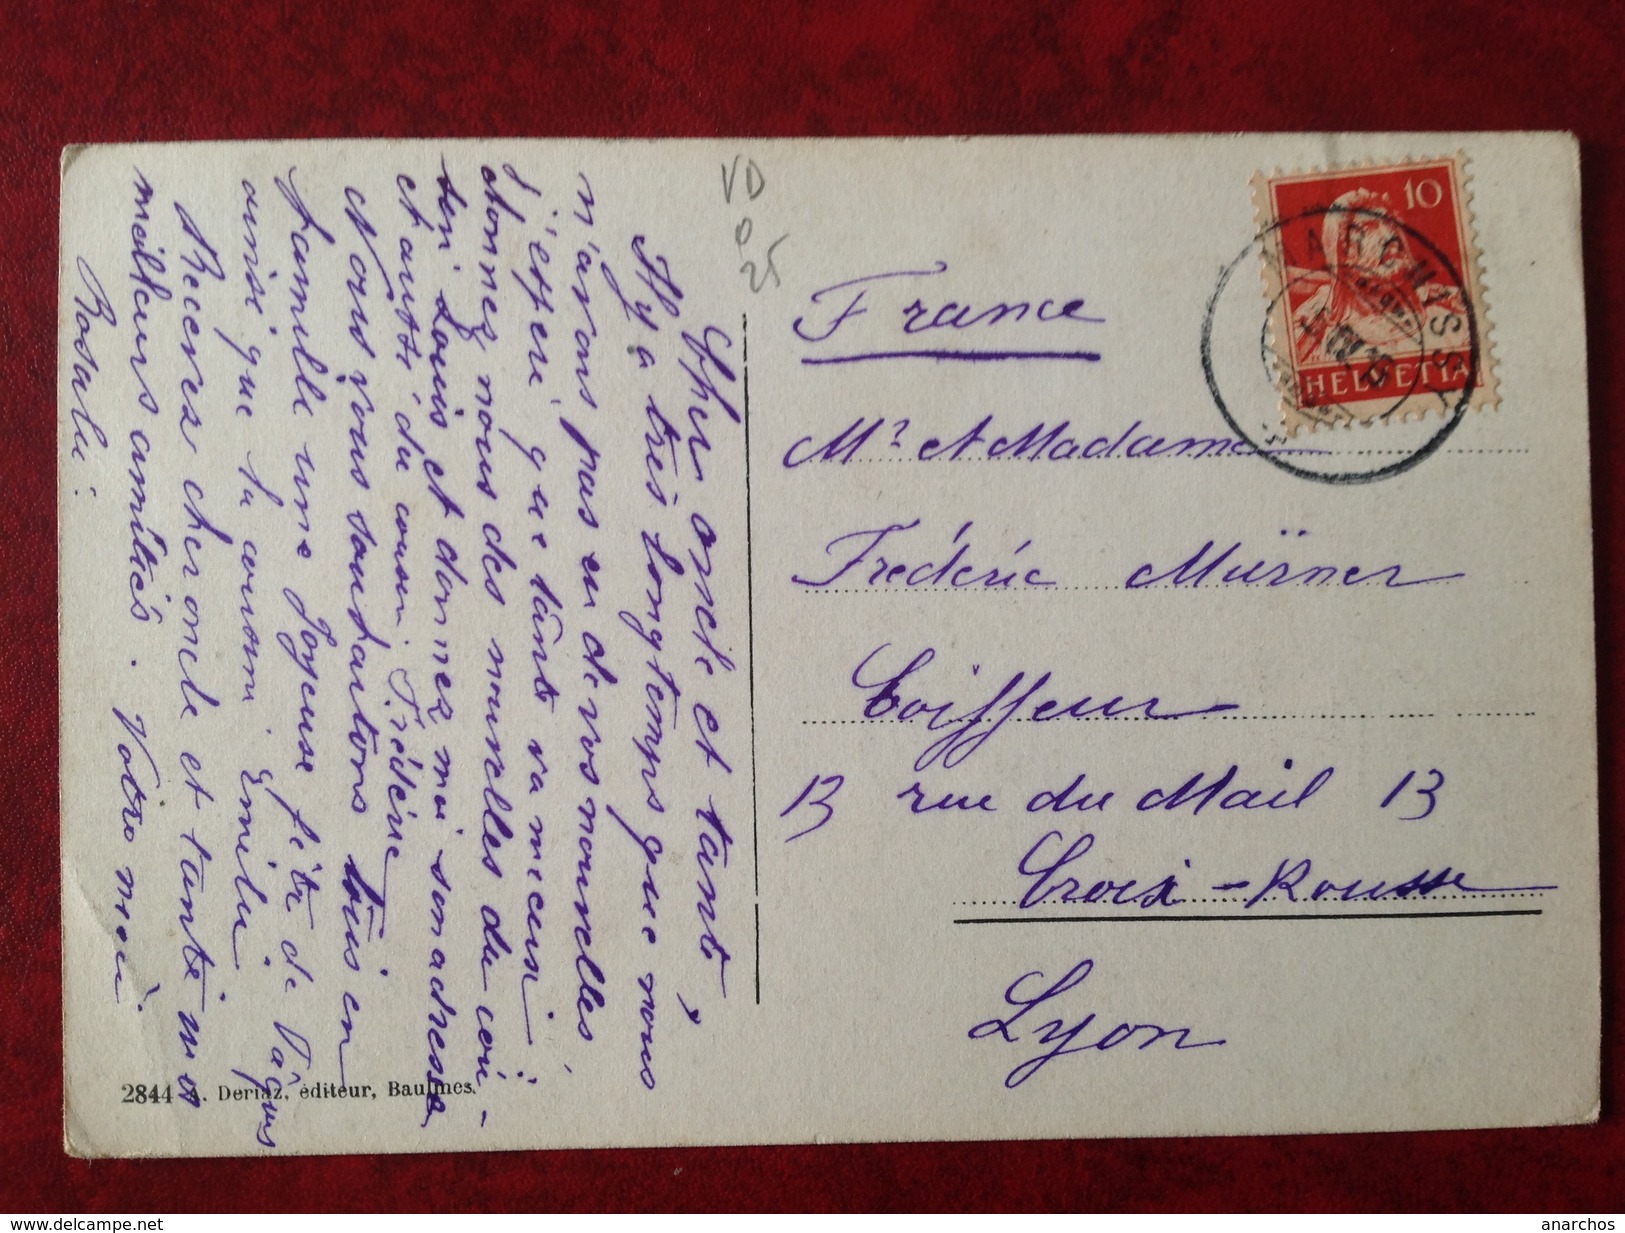 Cher oncle et tante,
Il y a très longtemps que nous
n'avons pas eu de vos nouvelles,
j'éspère que tante va mieux
donnez nous des nouvelles du cou-
sin Louis et donnez moi son adresse
et aussi du cousin Frédéric
Nous vous souhaitons tous en
famille une joyeuse fête de Pâques
ainsi que la cousine Emilie.
Recevez cher oncle et tante nos
meilleurs amitiés. Votre nièce.
Rosalie.
VD
0
25
France
Mr et Madame
Frédéric Mürner
Coiffeur
13 rue du Mail 13
Croix-Rousse
Lyon
10
HELVETIA
ARCHISSY
2844 A. Deriaz, éditeur, Baulmes.
www.delcampe.net
anarchos